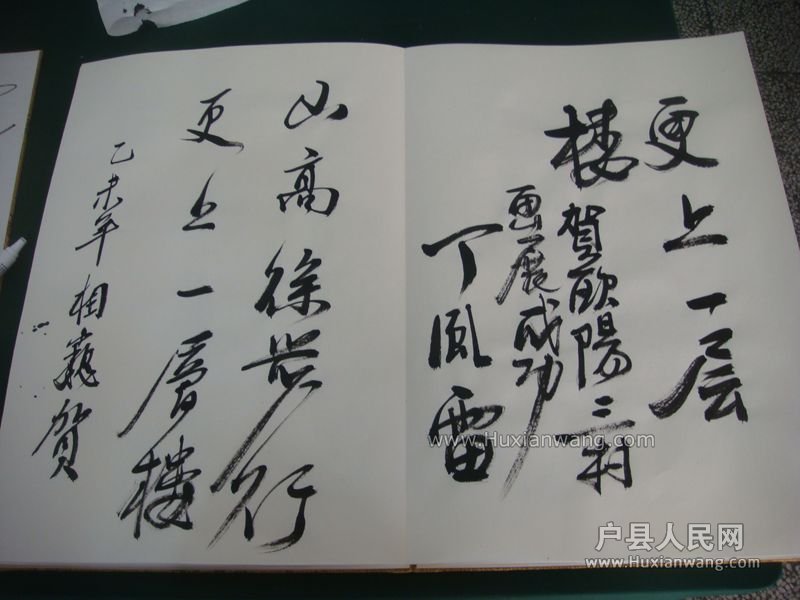 更上一层
楼
贺欧陽三村
画展成功
丁風雷
山高徐步行
更上一層樓
乙未年 相巍賀
www.Huxianwang.com
户县人民网
Huxianwang.com